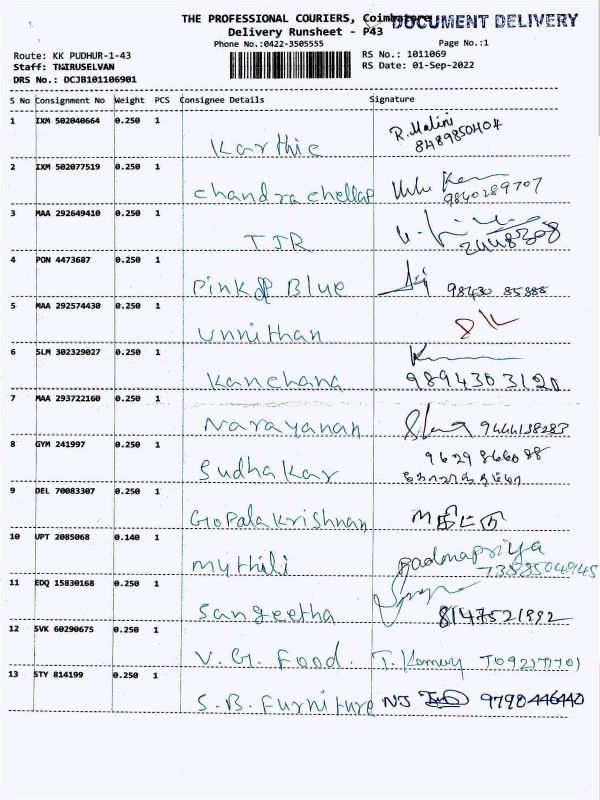 THE PROFESSIONAL COURIERS, Coimbatore
DOCUMENT DELIVERY
Delivery Runsheet - P43
Phone No.:0422-3505555
Page No.:1
Route: KK PUDHUR-1-43
RS No.: 1011069
Staff: THIRUSELVAN
RS Date: 01-Sep-2022
DRS No.: DCJB101106901
S No Consignment No Weight PCS Consignee Details Signature
1 IXM 502040664 0.250 1
Karthic R. Malini
8489850404
2 IXM 502077519 0.250 1
Chandra chellap
9840289707
3 MAA 292649410 0.250 1
TJR
4 PON 4473687 0.250 1
Pink & Blue 98430 85888
5 MAA 292574430 0.250 1
Unnithan
6 SLM 302329027 0.250 1
Kanchana 9894303120
7 MAA 293722160 0.250 1
Narayanan 9444138283
8 GYM 241997 0.250 1
Sudhakar 9629866088
9 DEL 70083307 0.250 1
Gopalakrishnan
10 UPT 2085068 0.140 1
Mythili Padmapriya
11 EDQ 15830168 0.250 1
Sangeetha 8147521992
12 SVK 60290675 0.250 1
V. G. Food.
13 STY 814199 0.250 1
S.B. Furniture NJ 9790446440